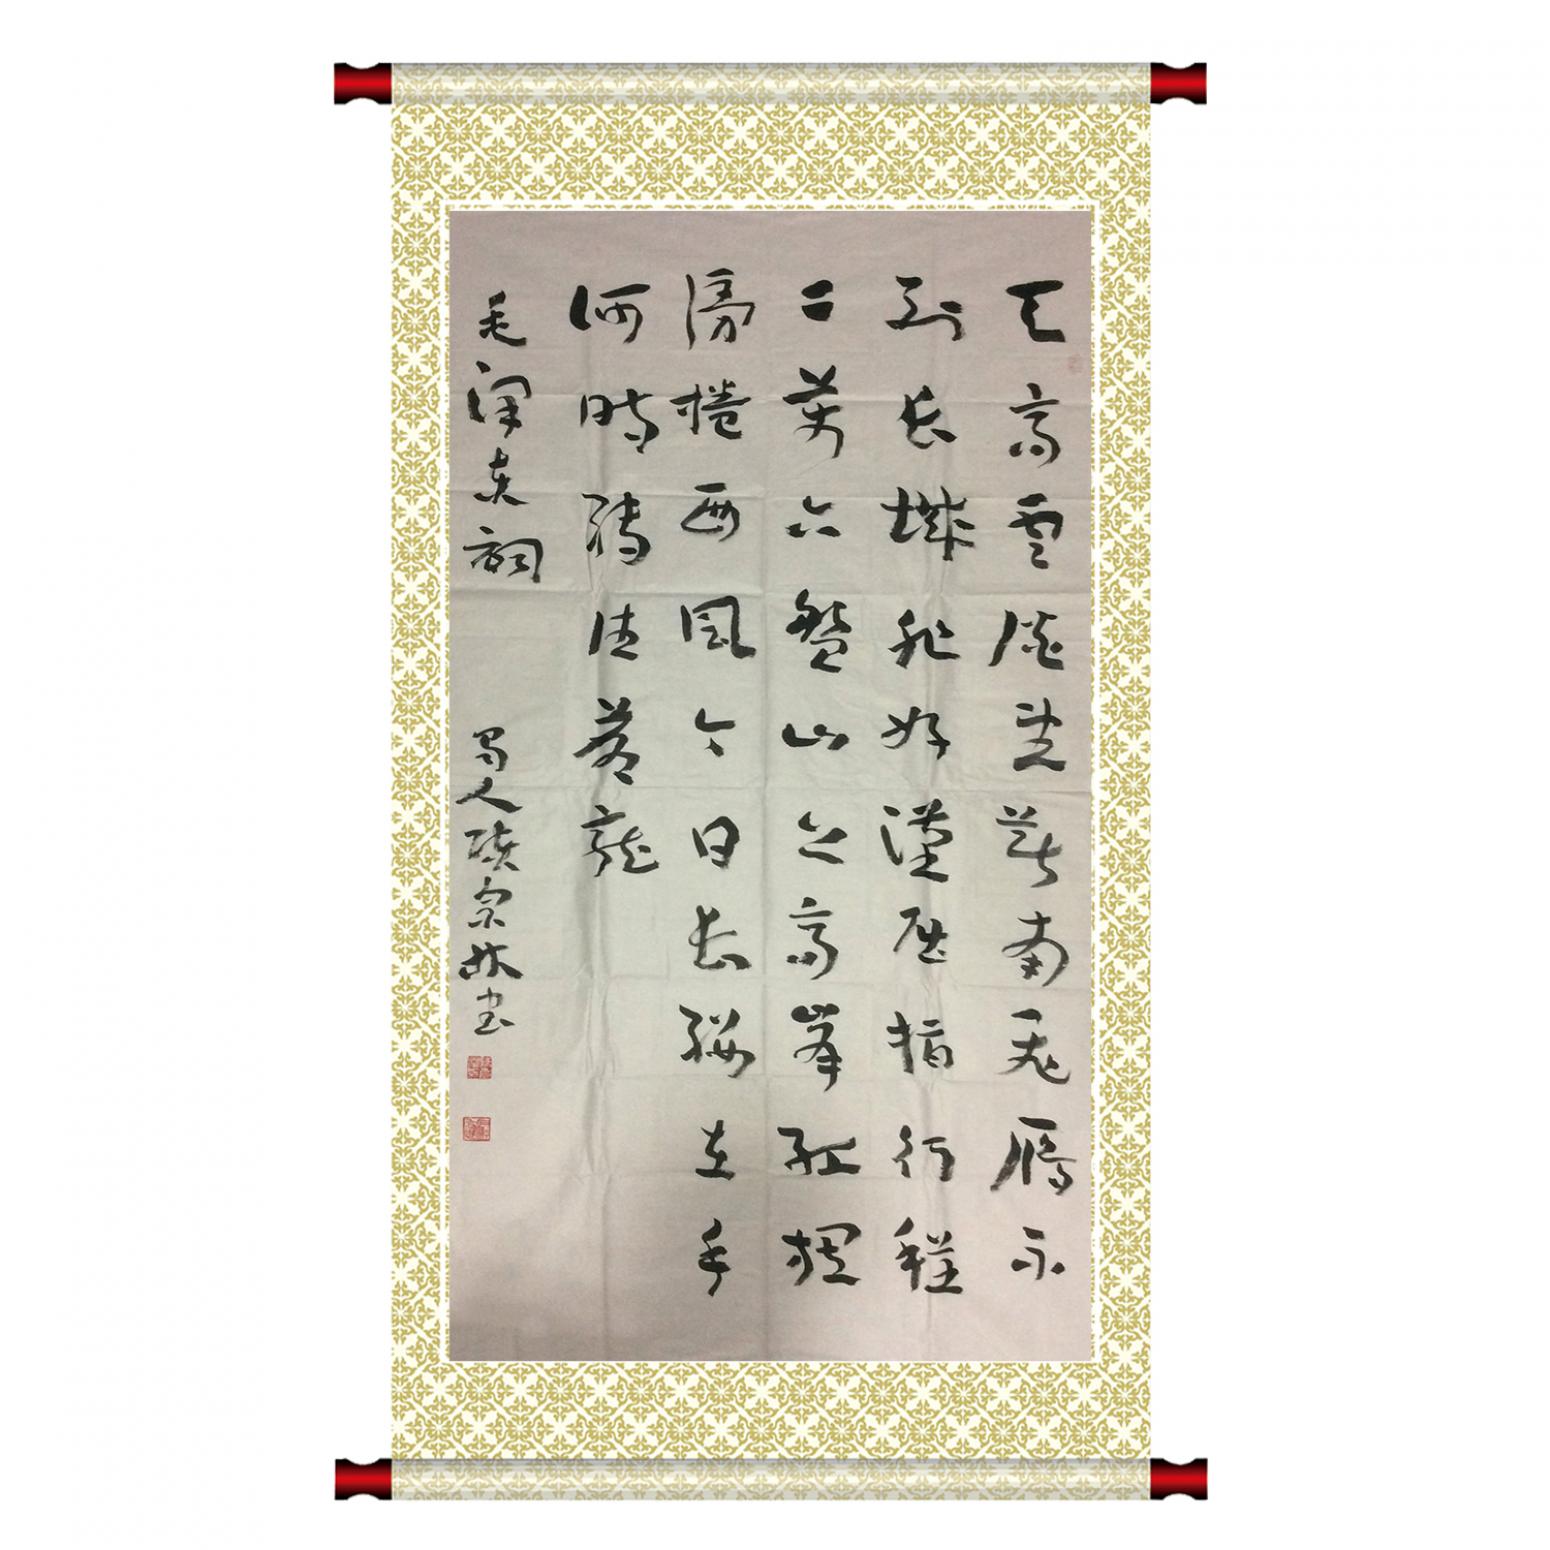 天高雲淡望斷南飛雁不
到長城非好漢屈指行程
二萬六盤山上高峯紅旗
漫捲西風今日長纓在手
何時縛住蒼龍
毛澤東詞
蜀人宗林书